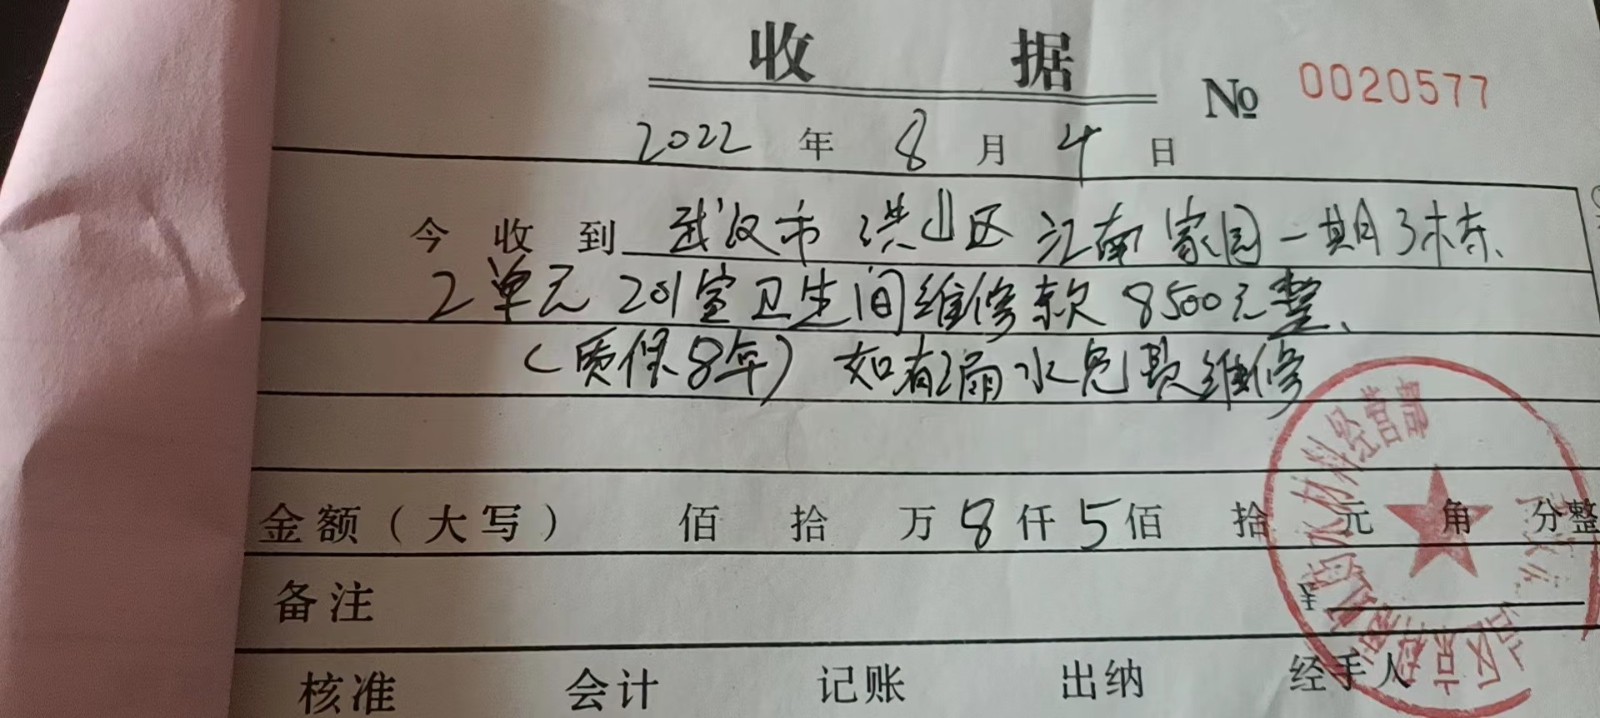 收 据
№ 0020577
2022 年 8 月 4 日
今收到 武汉市 洪山区 江南家园一期3栋、
2单元 201室卫生间维修款 8500元整、
(质保8年) 如有漏水免款维修
金额(大写) 佰 拾 万 8 仟 5 佰 拾 元 角 分整
备注 ¥
核准 会计 记账 出纳 经手人
水材料经营部